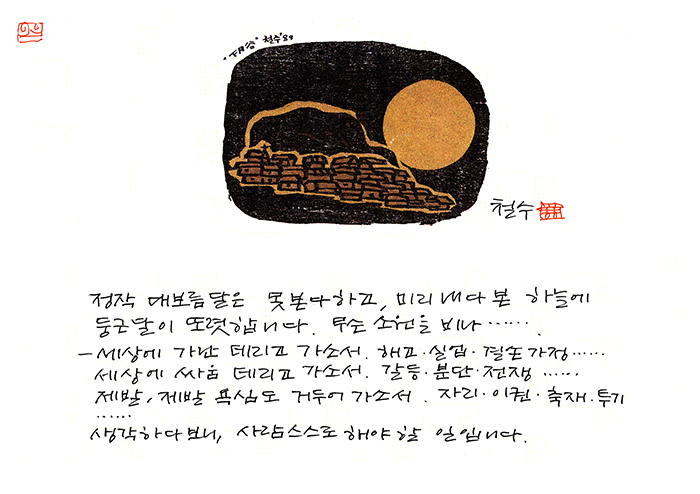 철수'89
철수
정작 대보름달은 못본다하고, 미리 내다 본 하늘에
둥근달이 또렷합니다. 무슨 소원을 비나 …….
- 세상에 가난 데리고 가소서. 해고·실업·결손가정……
세상에 싸움 데리고 가소서. 갈등·분단·전쟁 ……
제발, 제발 욕심도 거두어 가소서. 자리·이권·축재·투기
……
생각하다보니, 사람스스로 해야 할 일입니다.